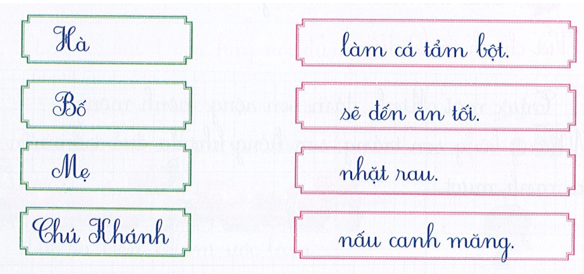 Hà
làm cá tẩm bột.
Bố
sẽ đến ăn tối.
Mẹ
nhặt rau.
Chú Khánh
nấu canh măng.